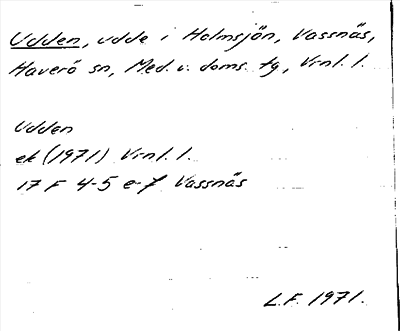 Udden, udde i Holmsjön, Vassnäs,
Haverö sn, Med. v. doms. tg, Vrnl. l.
Udden
ek (1971) Vrnl. l.
17 F 4-5 e-f Vassnäs
L.F. 1971.